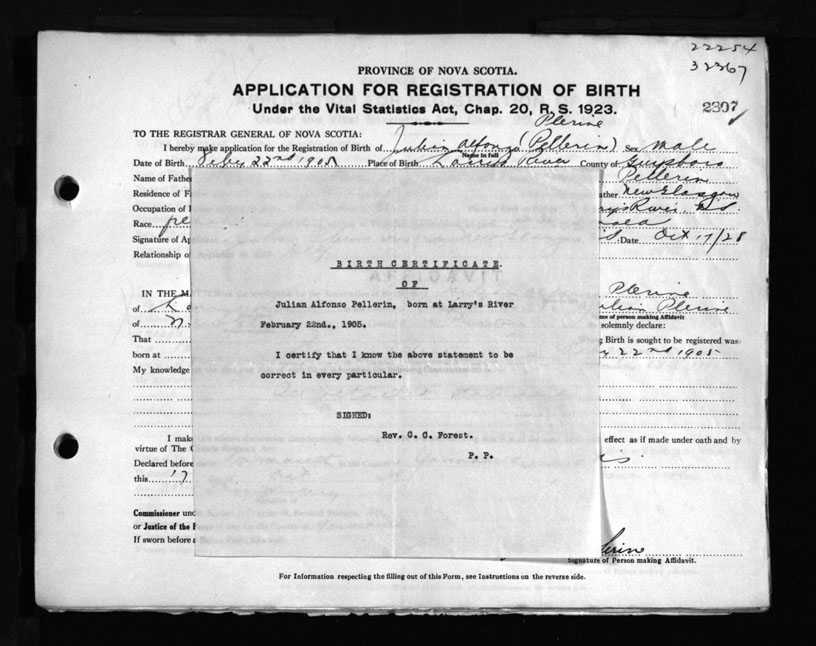 22254
32367
PROVINCE OF NOVA SCOTIA.
APPLICATION FOR REGISTRATION OF BIRTH
2307
Under the Vital Statistics Act, Chap. 20, R. S. 1923.
Plerine
TO THE REGISTRAR GENERAL OF NOVA SCOTIA:
I hereby make application for the Registration of Birth of Julian Alfonzo (Pellerin) Sex Male
Name in full
Date of Birth Feby 22nd 1905 Place of Birth Larrys River County of Guysboro
Name of Fathe Pellerin
Residence of F ather New Glasgow
Occupation of rry's River N S
Race
Signature of Ap Date Oct 17/28
Relationship o
BIRTH CERTIFICATE
OF
Julian Alfonzo Pellerin, born at Larry's River
February 22nd., 1905.
I certify that I know the above statement to be
correct in every particular.
SIGNED:
Rev. C. C. Forest.
P. P.
IN THE MA Plerine
of Julian Plerine
me of person making Affidavit
of solemnly declare:
That Birth is sought to be registered was
born at 22nd 1905
My knowledge
I mak effect as if made under oath and by
virtue of The C
Declared before
this 17
Commissioner und
or Justice of the P
If sworn before a
Signature of Person making Affidavit.
For Information respecting the filling out of this Form, see Instructions on the reverse side.